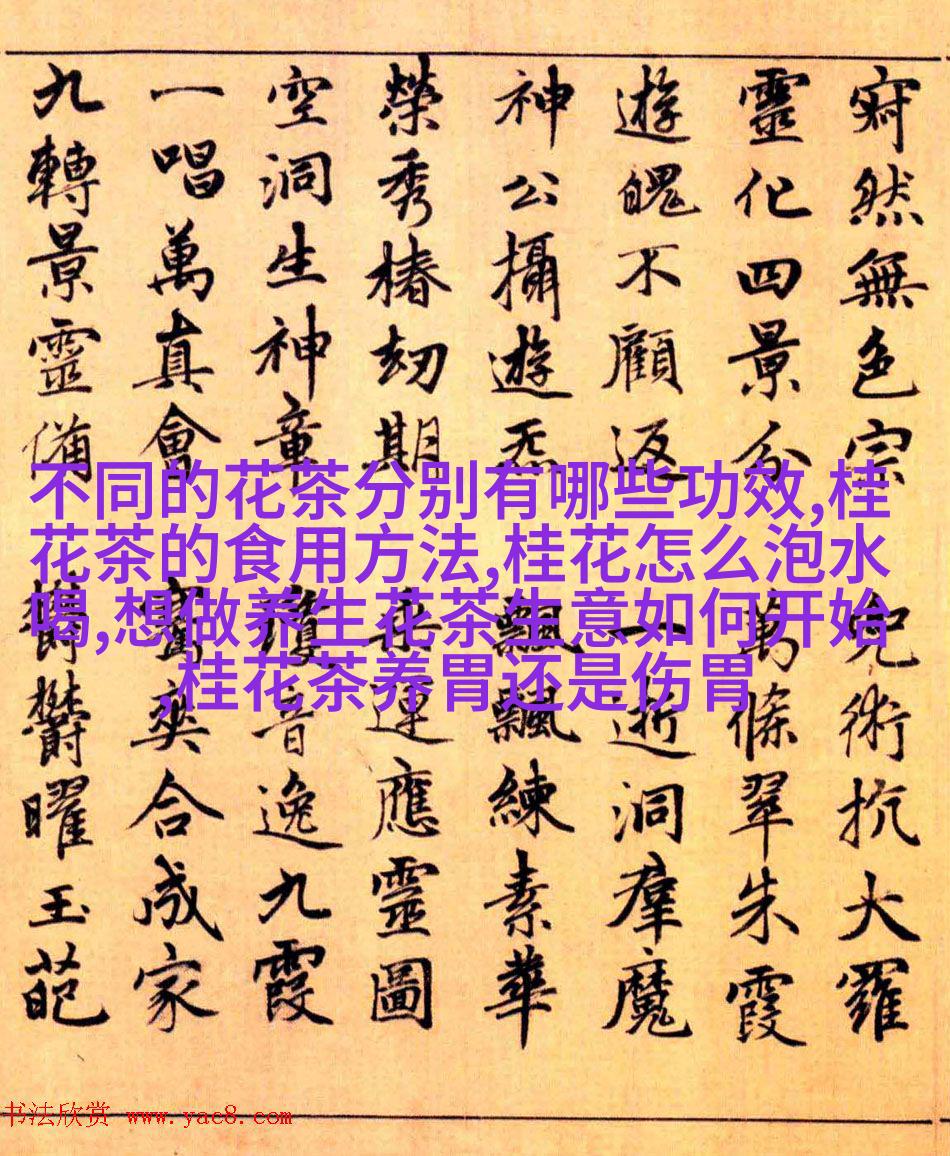 寂然無色宗 兜術抗大羅
靈化四景分 萬條翠朱霞
遊魄不顧返 一逝洞羣魔
神公攝遊炁 飄飄練素華
榮秀椿劫期 乘運應靈圖
空洞生神童 瓊音逸九霞
一唱萬真會 騫爽合成家
九轉景靈備 鬱鬱曜玉葩
不同的花茶分别有哪些功效,桂
花茶的食用方法,桂花怎么泡水
喝,想做养生花茶生意如何开始
,桂花茶养胃还是伤胃
书法欣赏 www.yac8.com